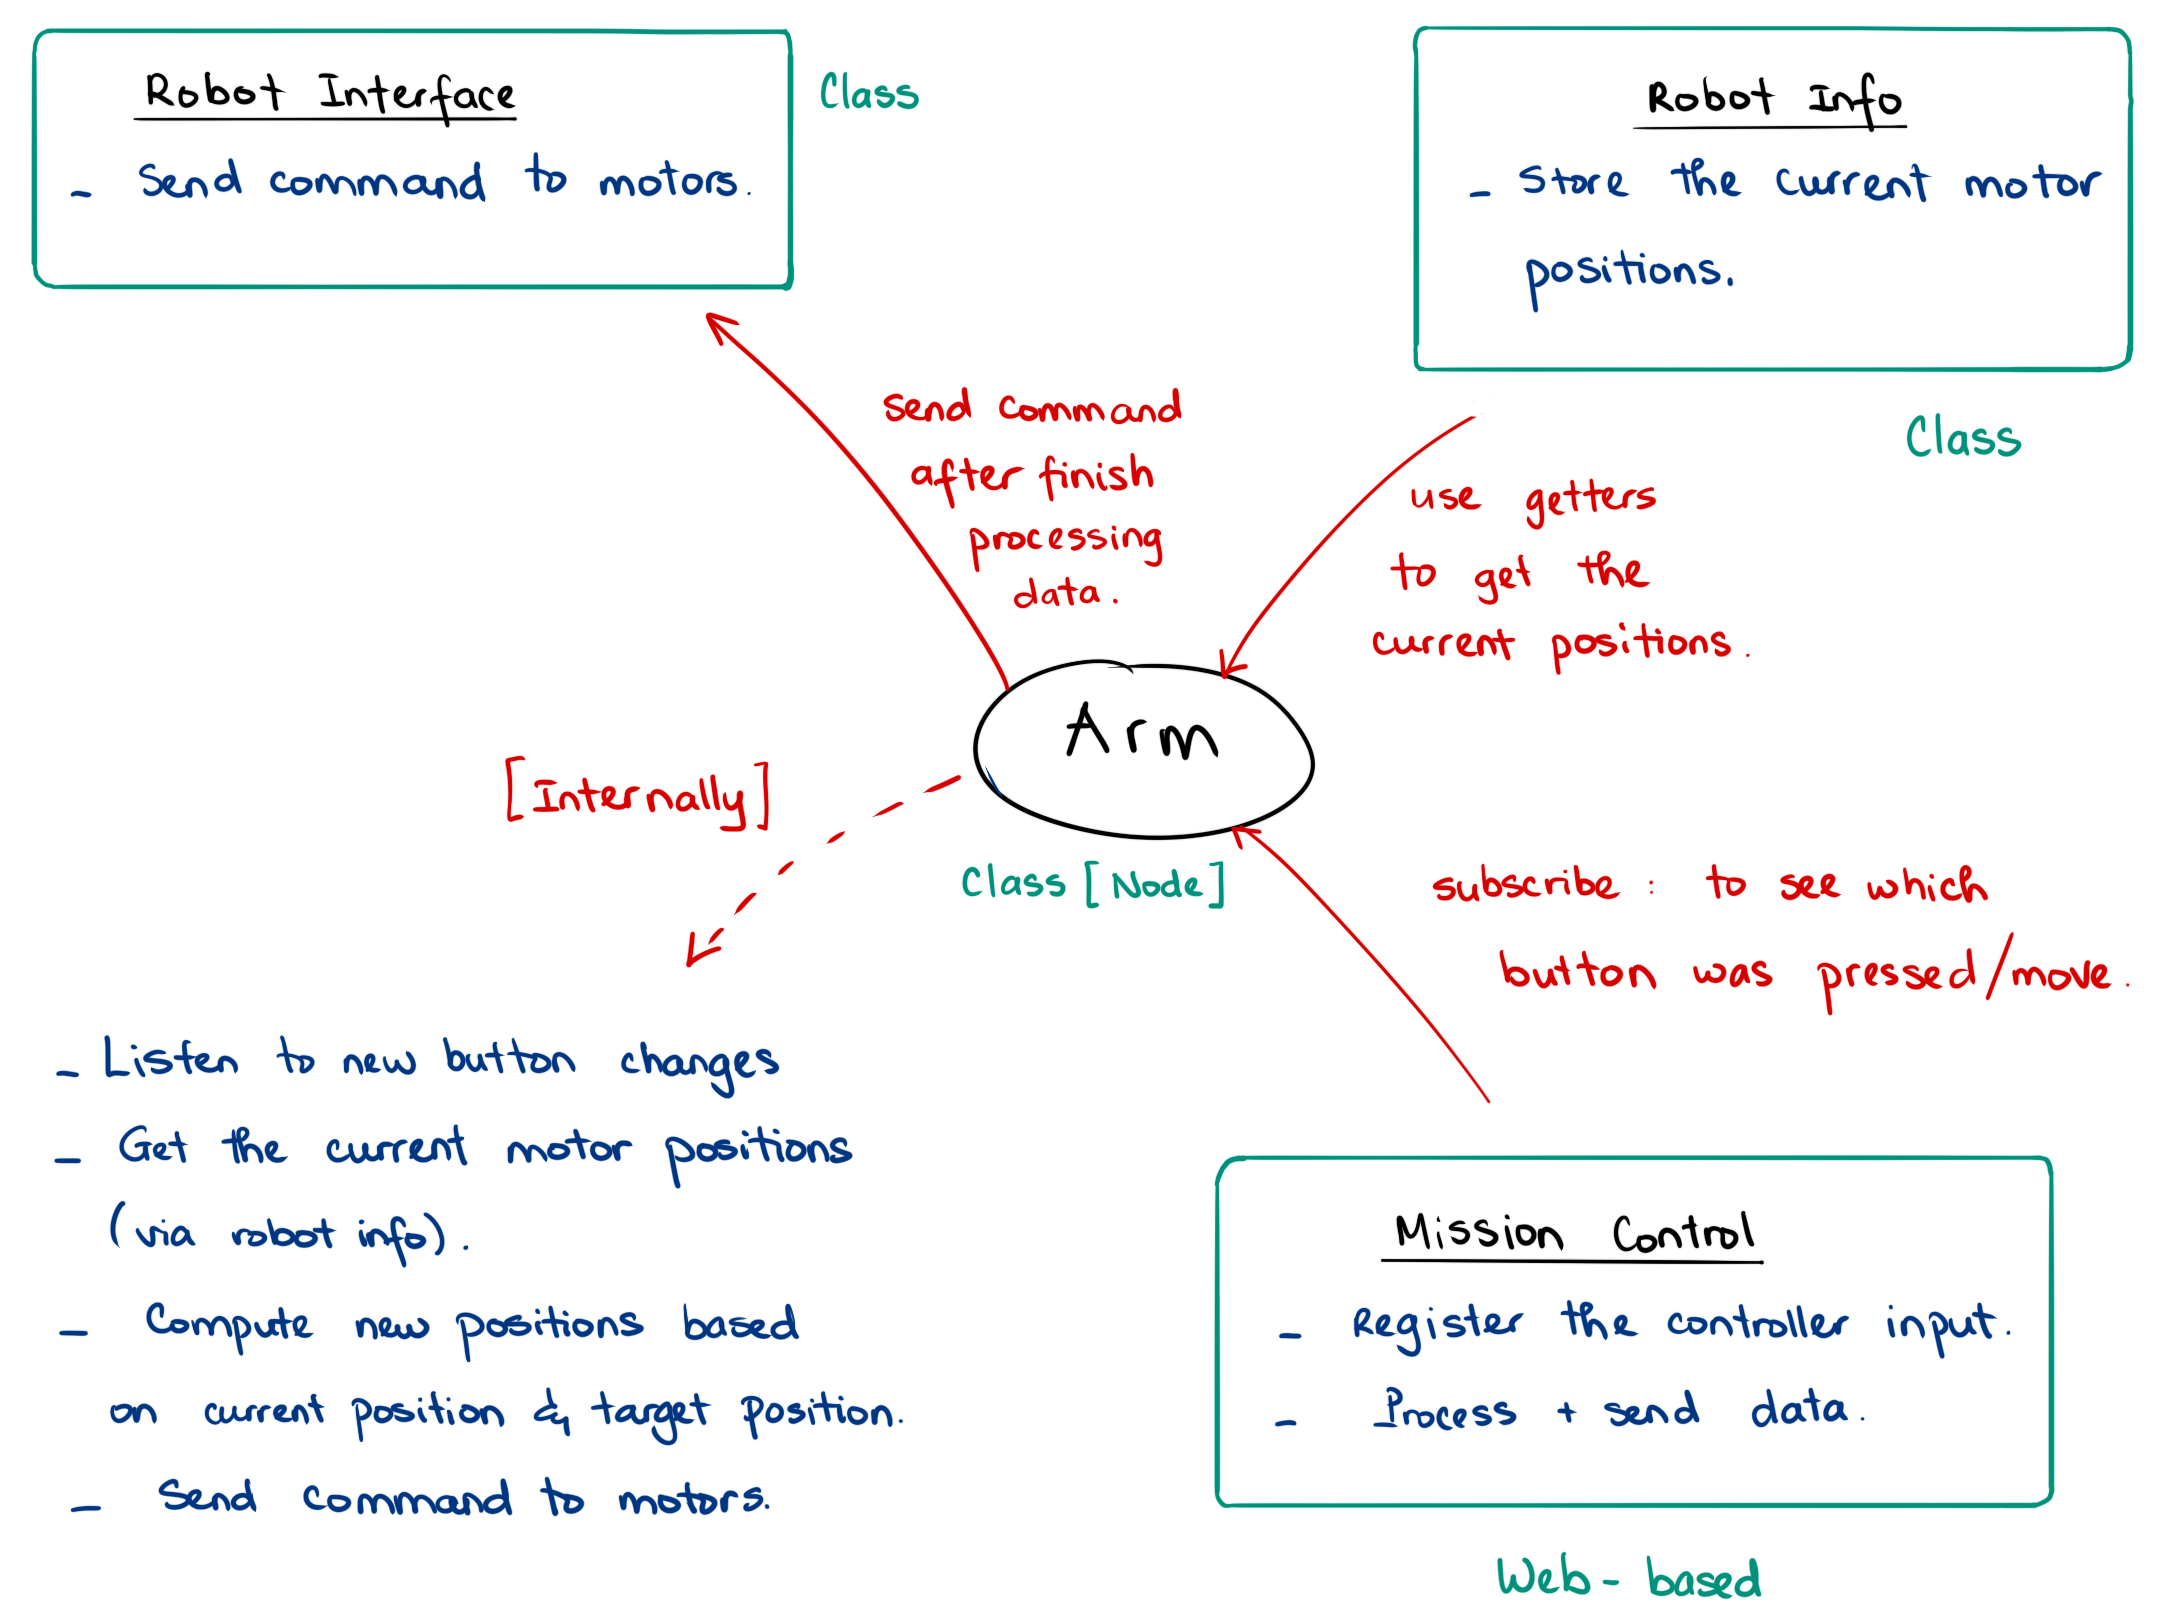 Robot Interface
- Send command to motors.
Class
Robot Info
- Store the current motor
positions.
Class
send command
after finish
processing
data.
use getters
to get the
current positions.
Arm
Class [Node]
[Internally]
subscribe : to see which
button was pressed/move.
- Listen to new button changes
- Get the current motor positions
(via robot info).
- Compute new positions based
on current position & target position.
- Send command to motors.
Mission Control
- Register the controller input.
- Process + send data.
Web-based